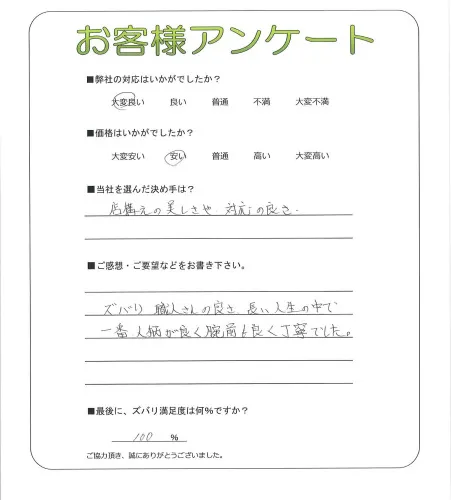 お客様アンケート
■弊社の対応はいかがでしたか？
大変良い 良い 普通 不満 大変不満
■価格はいかがでしたか？
大変安い 安い 普通 高い 大変高い
■当社を選んだ決め手は？
店構えの美しさや 対応の良さ.
■ご感想・ご要望などをお書き下さい。
ズバリ 職人さんの良さ. 長い人生の中で
一番 人柄が良く腕前も良く丁寧でした。
■最後に、ズバリ満足度は何％ですか？
100 ％
ご協力頂き、誠にありがとうございました。